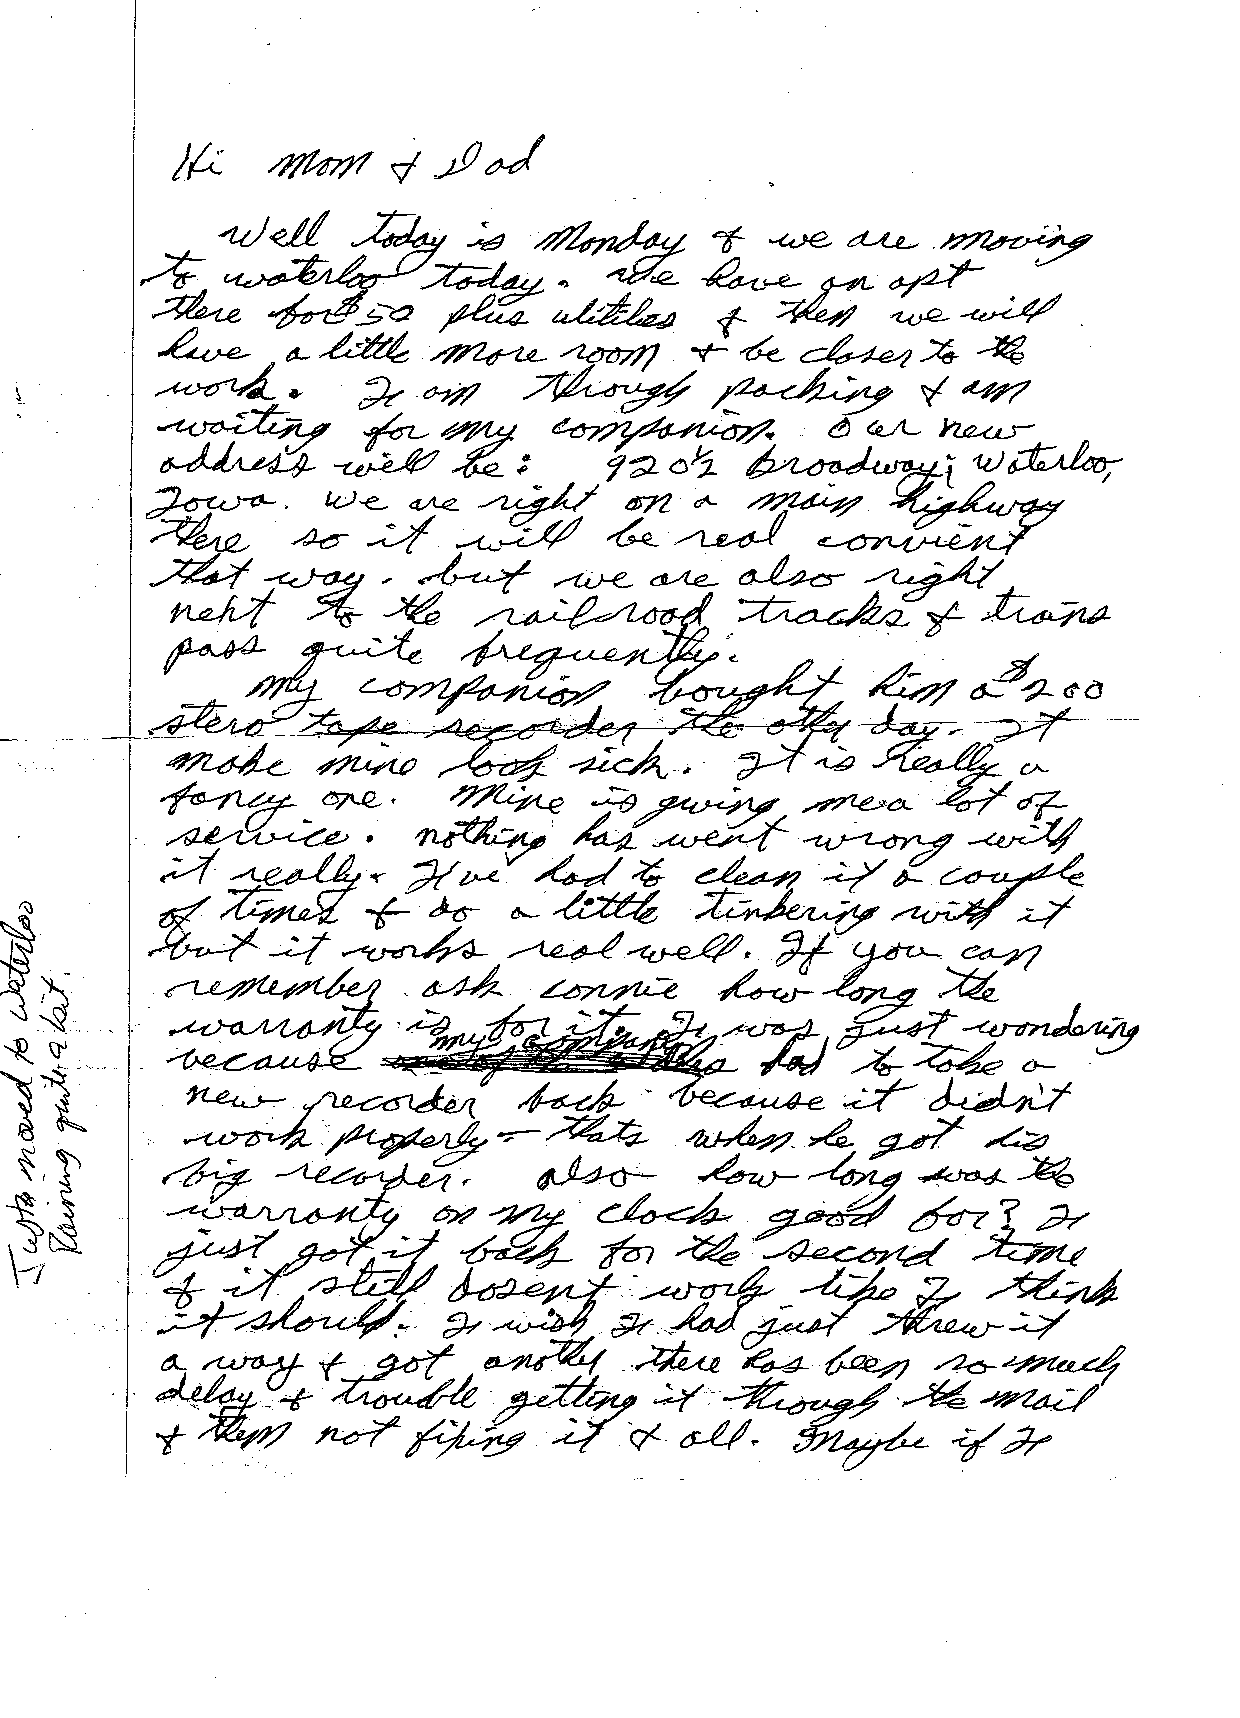 Hi Mom & Dad
Well today is Monday & we are moving
to waterloo today. We have an apt
there for $50 plus utitiles & then we will
have a little more room & be closer to the
work. I am through packing & am
waiting for my companion. Our new
address will be: 920½ Broadway; Waterloo,
Iowa. We are right on a main highway
there so it will be real convient
that way. but we are also right
next to the railroad tracks & trains
pass quite frequently.
My companion bought him a $200
stero tape recorder the othy day. It
make mine look sick. It is really a
fancy one. Mine is giving me a lot of
service. nothing has went wrong with
it really. I've had to clean it a couple
of times & do a little tinkering with it
but it works real well. If you can
remember ask connie how long the
warranty is for it. I was just wondering
because my companion had to take a
new recorder back because it didn't
work properly - thats when he got his
big recorder. also how long was the
warranty on my clock good for? I
just got it back for the second time
& it still dosent work like I think
it should. I wish I had just threw it
a way & got anothy there has been so much
delay & trouble getting it through the mail
& them not fixing it & all. Maybe if I
Just moved to Waterloo
Raining quite a bit.